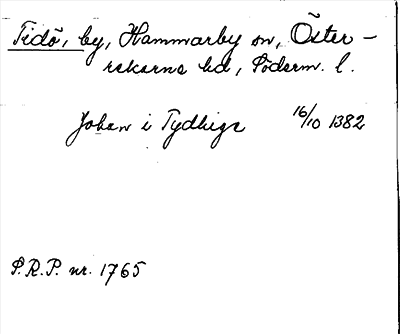 Tidö, by, Hammarby sn, Öster-
rekarne hd, Söderm. l.
Johan i Tydhigr 16/10 1382
S.R.P. nr. 1765